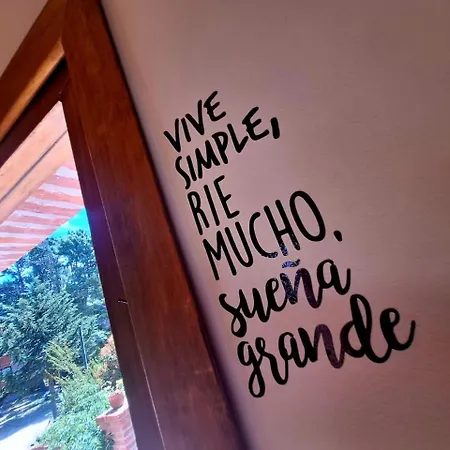 VIVE
SIMPLE,
RIE
MUCHO,
sueña
grande